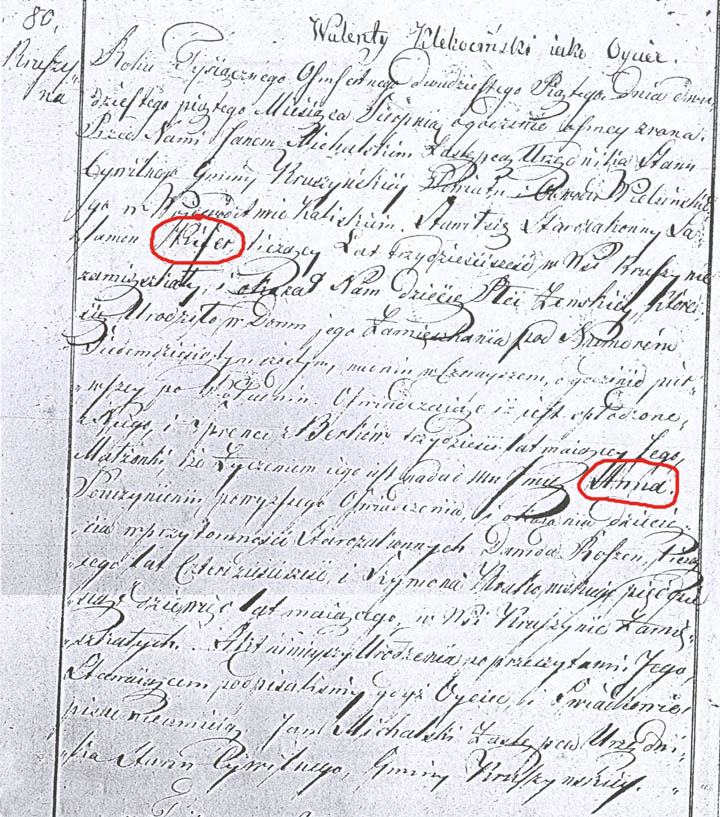 80.
Kruszy
na
Walenty Klekociński jako Oyciec.
Roku Tysiącznego Osmsetnego dwudziestego Piątego, Dnia dwu
dziestego piątego Miesiąca Sierpnia, o godzinie osmey zrana
Przed Nami Janem Michalskim Zastępcą Urzędnika Stanu
Cywilnego Gminy Kruszyńskiey Powiatu i Obwodu Wieluńskie
go w Woiewodztwie Kaliskiem. Stawił się Starozakonny Sa
lamon liczący Lat trzydzieści sześć, w Wsi Kruszynie
zamieszkały, i okazał Nam dziecię Płci Żenskiey, które
się Urodziło w Domu jego Zamieszkania pod Numerem
Siedmdziesiątym w Czorayszem, o godzinie pier
wszey po Południu. Oswiadczaiąc iż jest spłodzone
z Niego, i z Berków trzydzieści lat maiącey Jego
Małżonki, iż Życzeniem iego iest nadać mu Imię Anna.
Po uczynieniu powyższego Oswiadczenia i okazaniu dzieci
cia w przytomności Starozakonnych Dawida Rofzen, licza
cego lat Czterdzieści, i Szymona pięćdzie
siąt dziewięć lat maiącego, w Wsi Kruszynie Zamie
szkałych. Akt ninieyszy Urodzenia po przeczytaniu Jego,
Stawaiącem podpisaliśmy gdyż Oyciec i Świadkowie
pisać nieumieią Jan Michalski Zastępca Urzędni
ka Stanu Cywilnego, Gminy Kruszyńskiey.